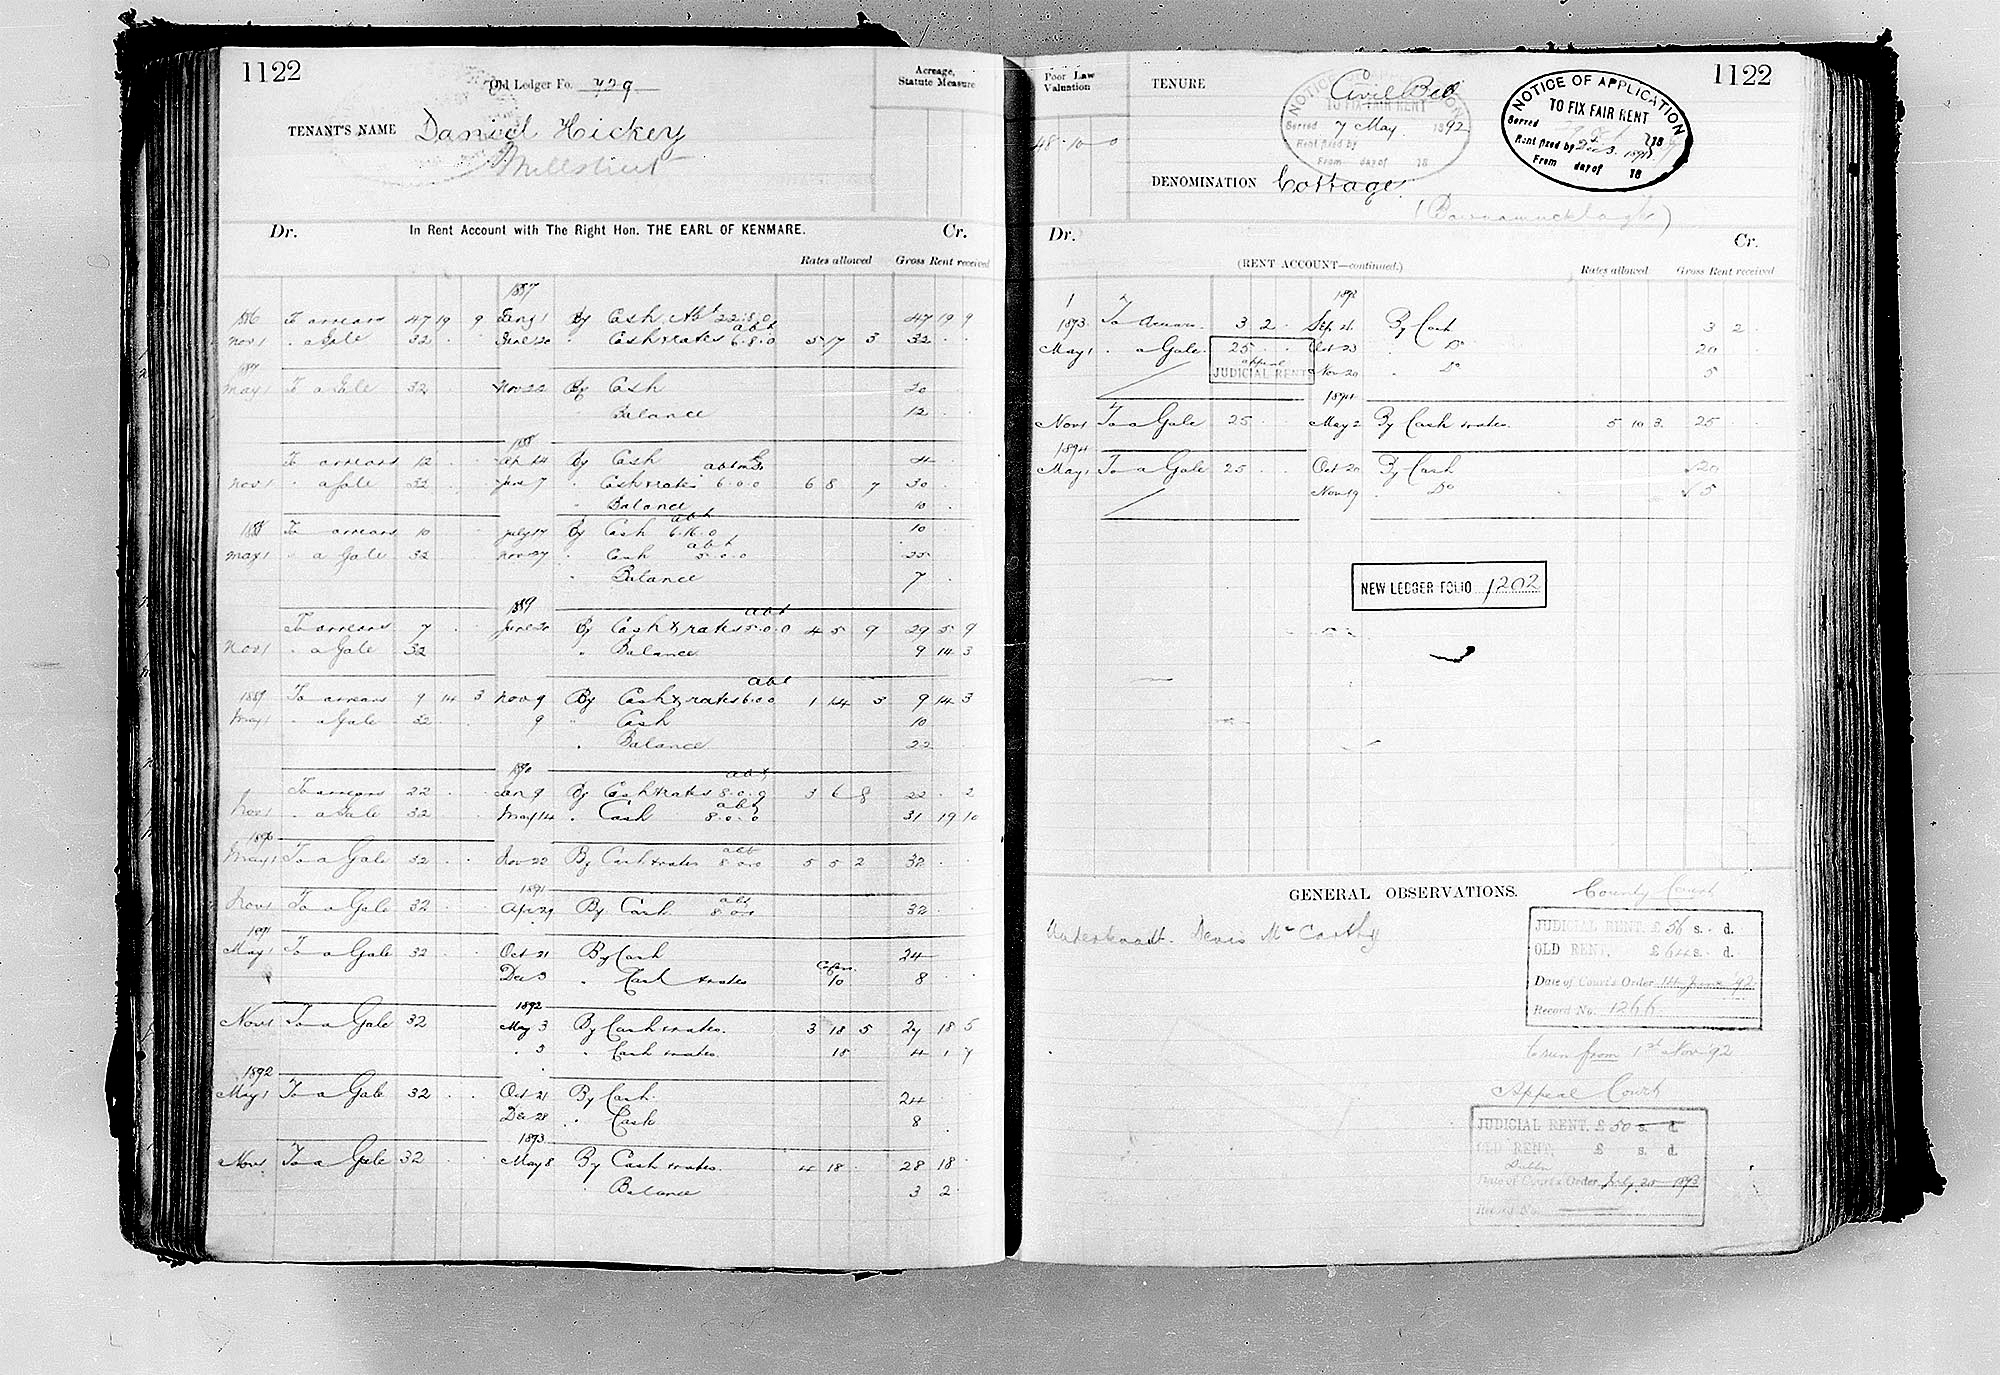 1122
Old Ledger Fo. 729
Acreage, Statute Measure
TENANT'S NAME Daniel Hickey
Millstreet
Dr. In Rent Account with The Right Hon. THE EARL OF KENMARE. Cr.
Rates allowed Gross Rent received
1887
1886 To arrears 47 19 9 Jany 1 By Cash Abt 22.8.0 47 19 9
Nov 1 " a Gale 32 June 20 " Cash & rates abt 6.8.0 5 17 3 32
1887
May 1 To a Gale 32 Nov 22 By Cash 20
Balance 12
1888
To arrears 12 Ap 14 By Cash 4
Nov 1 " a Gale 32 June 7 " Cash & rates 6.0.0 6 8 7 30
" Balance 10
1888 To arrears 10 July 17 By Cash abt 6.16.0 10
May 1 " a Gale 32 Nov 27 " Cash abt 5.0.0 25
" Balance 7
1889
To arrears 7 June 20 By Cash & rates abt 5.0.0 4 5 9 29 5 9
Nov 1 " a Gale 32 " Balance 9 14 3
1889 To arrears 9 14 3 Nov 9 By Cash & rates abt 6.0.0 1 14 3 9 14 3
May 1 " a Gale 32 9 " Cash 10
" Balance 22
1890
To arrears 22 Jan 9 By Cash & rates abt 8.0.9 3 6 8 22 . 2
Nov 1 " a Gale 32 May 14 " Cash abt 8.0.0 31 19 10
1890
May 1 To a Gale 32 Nov 22 By Cash & rates abt 8.0.0 5 5 2 32
1891
Nov 1 To a Gale 32 Apr 29 By Cash abt 8.0.0 32
1891
May 1 To a Gale 32 Oct 21 By Cash 24
Dec 3 " Cash & rates 10 8
1892
Nov 1 To a Gale 32 May 3 By Cash & rates. 3 18 5 27 18 5
" 3 " Cash & rates. 18 4 1 7
1892
May 1 To a Gale 32 Oct 21 By Cash. 24
Dec 28 " Cash 8
1873
Nov 1 To a Gale 32 May 8 By Cash & rates. 4 18 28 18
Balance 3 2
Poor Law Valuation
48 . 10 . 0
TENURE Civil Bill
1122
NOTICE OF APPLICATION
TO FIX FAIR RENT
Served 7 May. 1892
Rent fixed by
From day of 18
NOTICE OF APPLICATION
TO FIX FAIR RENT
Served 18
Rent fixed by
From day of 18
DENOMINATION Cottage.
Dr. Cr.
(RENT ACCOUNT—continued.)
Rates allowed Gross Rent received
1893
1873. To Arrears. 3 2 Sep 21 By Cash 3 2
May 1 " a Gale. 25 Oct 23 " Do 20
appeal
JUDICIAL RENT Nov 20 " Do 5
1894
Nov 1 To a Gale 25 May 2 By Cash & rates. 5 10 3. 25
1894
May 1 To a Gale 25 Oct 20 By Cash 20
Nov 19 " Do 5
NEW LEDGER FOLIO 1202
GENERAL OBSERVATIONS.
County Court
JUDICIAL RENT, £ 56 s. d.
OLD RENT, £ 64 s. d.
Date of Court's Order June '92
Record No. 1266
to run from 1st Nov '92
Appeal Court
JUDICIAL RENT, £ 50 s. d.
OLD RENT, £ s. d.
Date of Court's Order July 1893
Record No.
Denis McCarthy